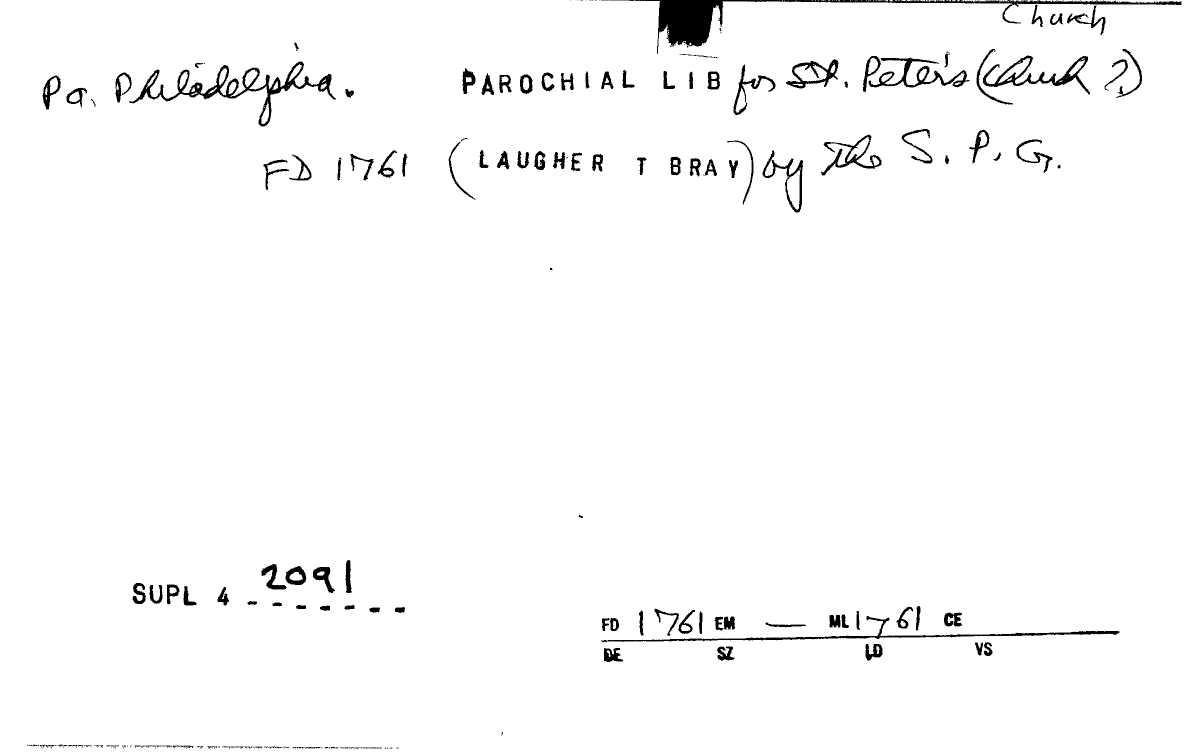 Church
Pa. Philadelphia. PAROCHIAL LIB for St. Peter's (Church ?)
FD 1761 (LAUGHER T BRAY) by the S. P. G.
SUPL 4 2091
FD 1761 EM — ML 1761 CE
DE SZ LD VS